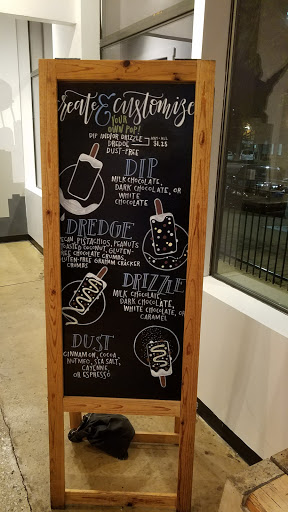 create & customize
YOUR
OWN POP!
DIP AND/OR DRIZZLE
DREDGE
$1.25
DUST-FREE
DIP
MILK CHOCOLATE,
DARK CHOCOLATE, OR
WHITE
CHOCOLATE
DREDGE
PECAN, PISTACHIOS, PEANUTS
TOASTED COCONUT, GLUTEN-
FREE CHOCOLATE CRUMBS,
GLUTEN-FREE GRAHAM CRACKER
CRUMBS
DRIZZLE
MILK CHOCOLATE,
DARK CHOCOLATE,
WHITE CHOCOLATE, OR
CARAMEL
DUST
CINNAMON, COCOA,
NUTMEG, SEA SALT,
CAYENNE,
OR ESPRESSO